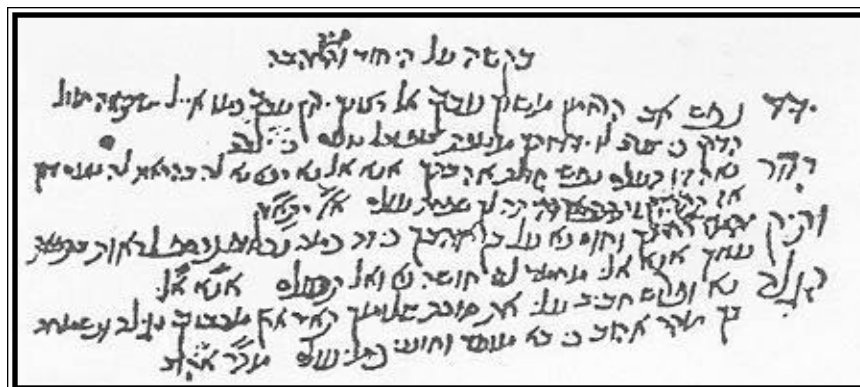 בקשה על היחוד
ידיד נפש אב הרחמן משוך עבדך אל רצונך ירוץ עבדך כמו איל ישתחוה מול
הדרך כי יערב לו ידידותך מנופת צוף וכל טעם
הדור נאה זיו העולם נפשי חולת אהבתך אנא אל נא רפא נא לה בהראות לה נועם זיוך
אז תתחזק ותתרפא והיתה לך שפחת עולם
ותיק יהמו רחמיך וחוס נא על בן אוהבך כי זה כמה נכסוף נכספתי לראות בתפארת
עוזך אנא אלי מחמד לבי חושה נא ואל תתעלם אנא אלי
הגלה נא ופרוש חביב עלי את סוכת שלומך תאיר ארץ מכבודך נגילה ונשמחה
בך מהר אהוב כי בא מועד וחנני כימי עולם מהר אהוב